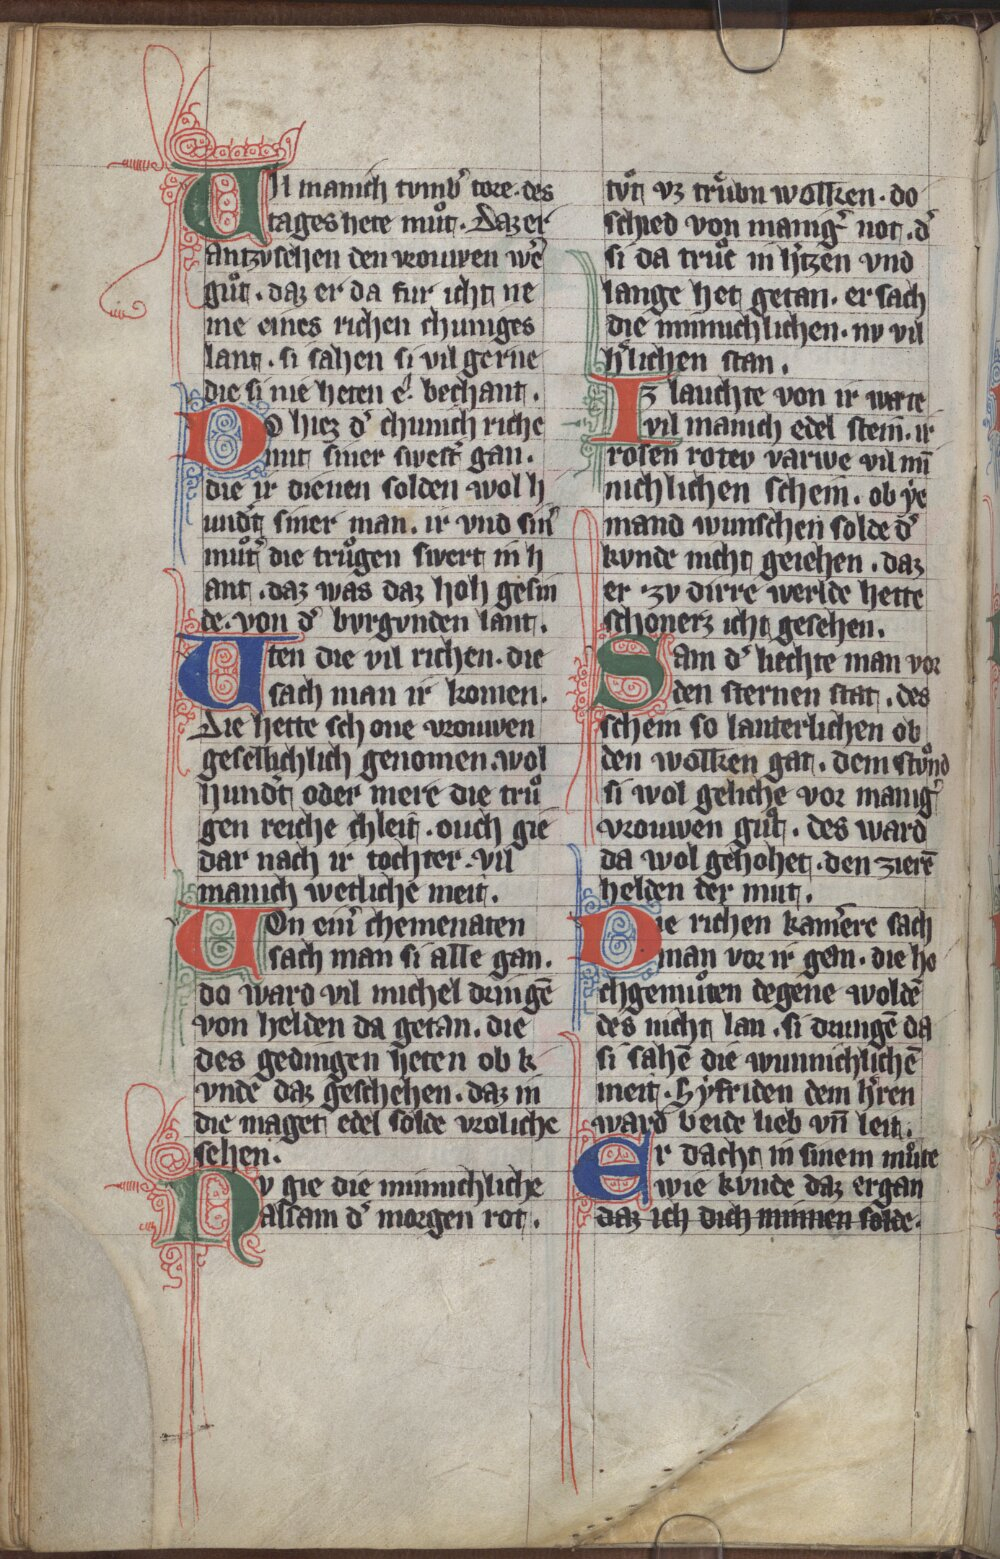 Vil manich tvmb᷑ tore. des
tages hete můt. Daz er
antzvsehen den vrouwen we᷑
gůt. daz er da fur icht ne
me eines richen chuniges
lant. si sahen si vil gerne
die si nie heten e. bechant.
Do hiez d᷑ chunich riche
mit siner swest᷑ gan.
die ir dienen solden wol h
undt᷑ siner man. ir vnd sin᷑
můt᷑ die trůgen swert in h
ant. daz was daz hoh gesin
de. von d᷑ bvrgvnden lant.
Vten die vil richen. die
sach man ir komen.
Die hette schone vrouwen
gesellichlich genomen. wol
hundt᷑ oder mere die trů
gen reiche chleit. ouch gie
dar nach ir tochter. vil
manich wetliche meit.
Von ein᷑ chemenaten
sach man si alle gan.
do ward vil michel dringē
von helden da getan. die
des gedingen heten ob k
vnde daz geschehen. daz in
die maget edel solde vroliche
sehen.
Nv gie die minnichliche
alsam d᷑ morgen rot.
tůt vz trůbn wolken. do
schied von manig᷑ not. d᷑
si da trůc in h᷑tzen vnd
lange het getan. er sach
die minnichlichen. nv vil
h᷑lichen stan.
Iz lauchte von ir wete
vil manich edel stein. ir
rosen rotev varwe vil mī
nichlichen schein. ob ẏe
mand wunschen solde d᷑
kvnde nicht geiehen. daz
er zv dirre werlde hette
schonerz icht gesehen.
Sam d᷑ liechte man vor
den sternen stat. des
schein so lauterlichen ob
den wolken gat. dem stůnd
si wol geliche vor manig᷑
vrouwen gůt. des ward
da wol gehohet. den zierē
helden der mut.
Die richen kam᷑ere sach
man vor ir gen. die ho
chgemůten degene woldē
des nicht lan. si drungē da
si sahē die wunnichlichē
meit. Sẏfriden dem h᷑ren
ward beide lieb vn̄ leit.
Er dacht in sinem můte
wie kvnde daz ergan
daz ich dich minnen solde.